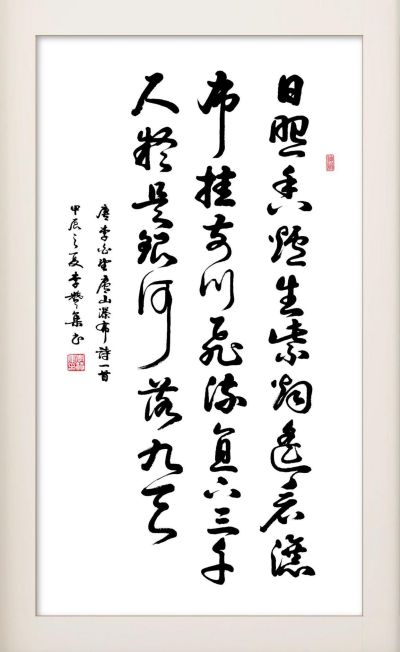 日照香爐生紫烟遥看瀑
布挂前川飛流直下三千
尺疑是銀河落九天
唐李白望廬山瀑布詩一首
甲辰之夏李集书